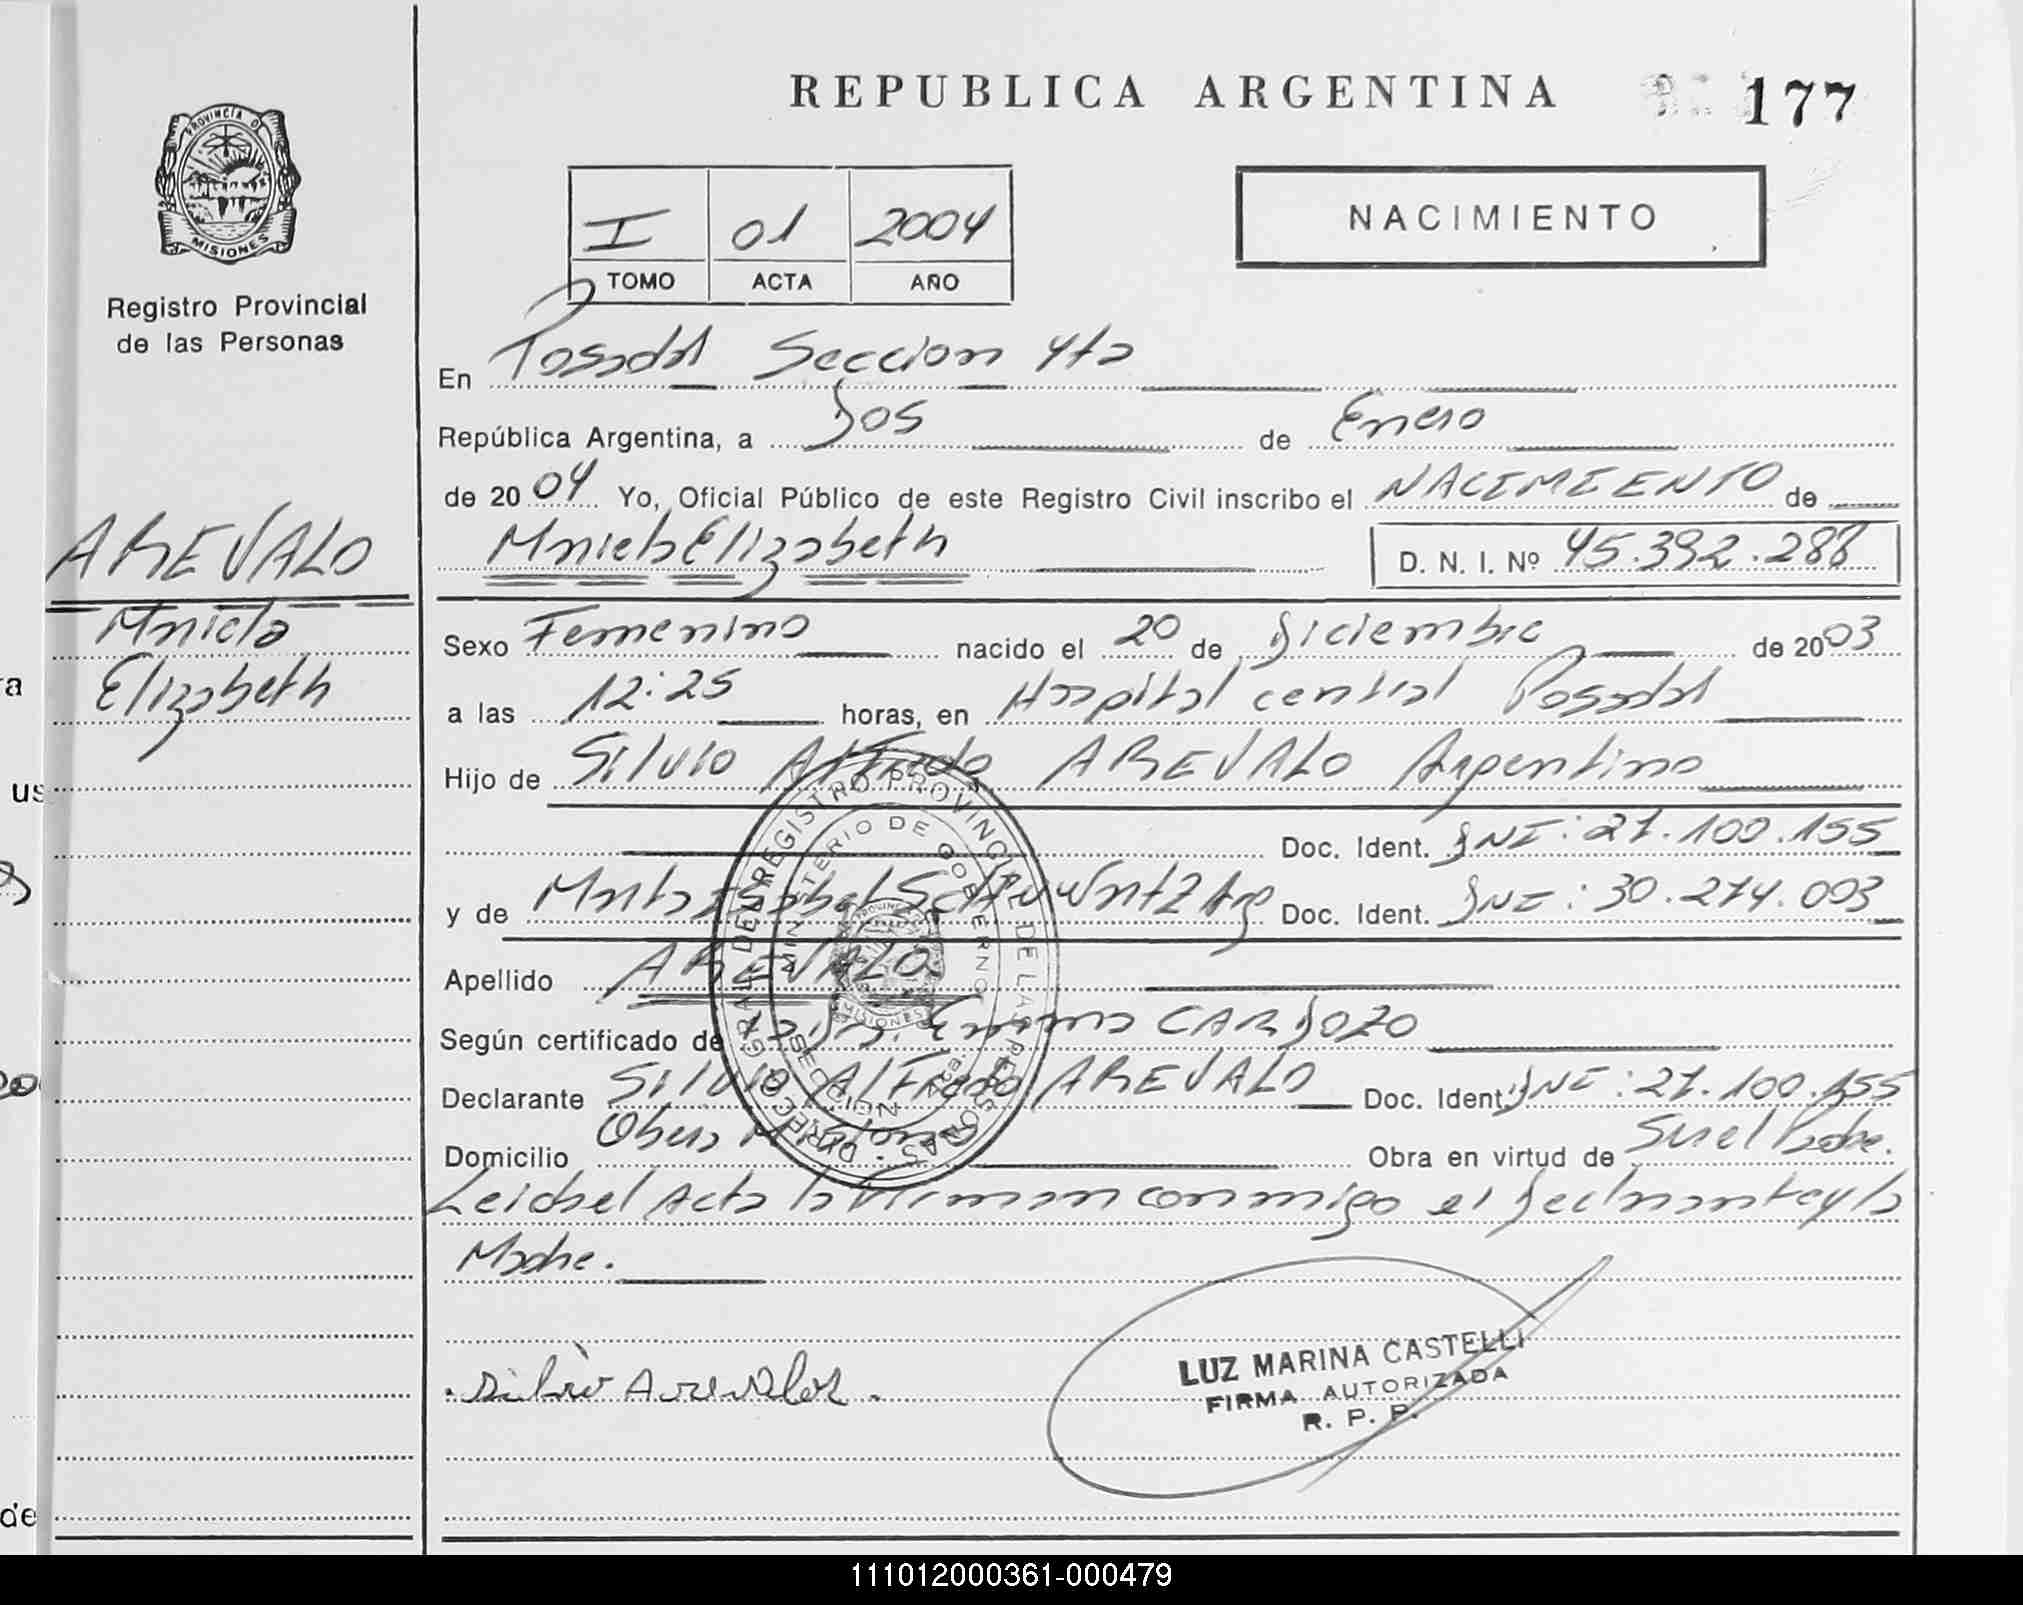 REPUBLICA ARGENTINA
177
PROVINCIA DE
MISIONES
Registro Provincial
de las Personas
I 01 2004
TOMO ACTA AÑO
NACIMIENTO
En Posadas Seccion 4ta
República Argentina, a Dos de Enero
de 2004 Yo, Oficial Público de este Registro Civil inscribo el NACIMIENTO de
Elizabeth D. N. I. Nº 45.392.288
AREVALO
Elizabeth
Sexo Femenino nacido el 20 de Diciembre de 2003
a las 12:25 horas, en Hospital central Posadas
Hijo de Silvio Alfredo AREVALO Argentino
Doc. Ident. DNI: 27.100.155
y de Marta Isabel Arg Doc. Ident. DNI: 30.274.003
Apellido AREVALO
Según certificado de CARDOZO
Declarante Silvio Alfredo AREVALO Doc. Ident. DNI: 27.100.155
Domicilio Obera Misiones Obra en virtud de Ser el Padre.
Leida el Acta la Firman conmigo el Declarante y la
Madre.
Silvio Arevalos
LUZ MARINA CASTELLI
FIRMA AUTORIZADA
R. P. P.
DIREC. GRAL. DEL REGISTRO PROVINCIAL DE LAS PERSONAS
MINISTERIO DE GOBIERNO
SECCION
PROVINCIA
MISIONES
ra
us
de
111012000361-000479